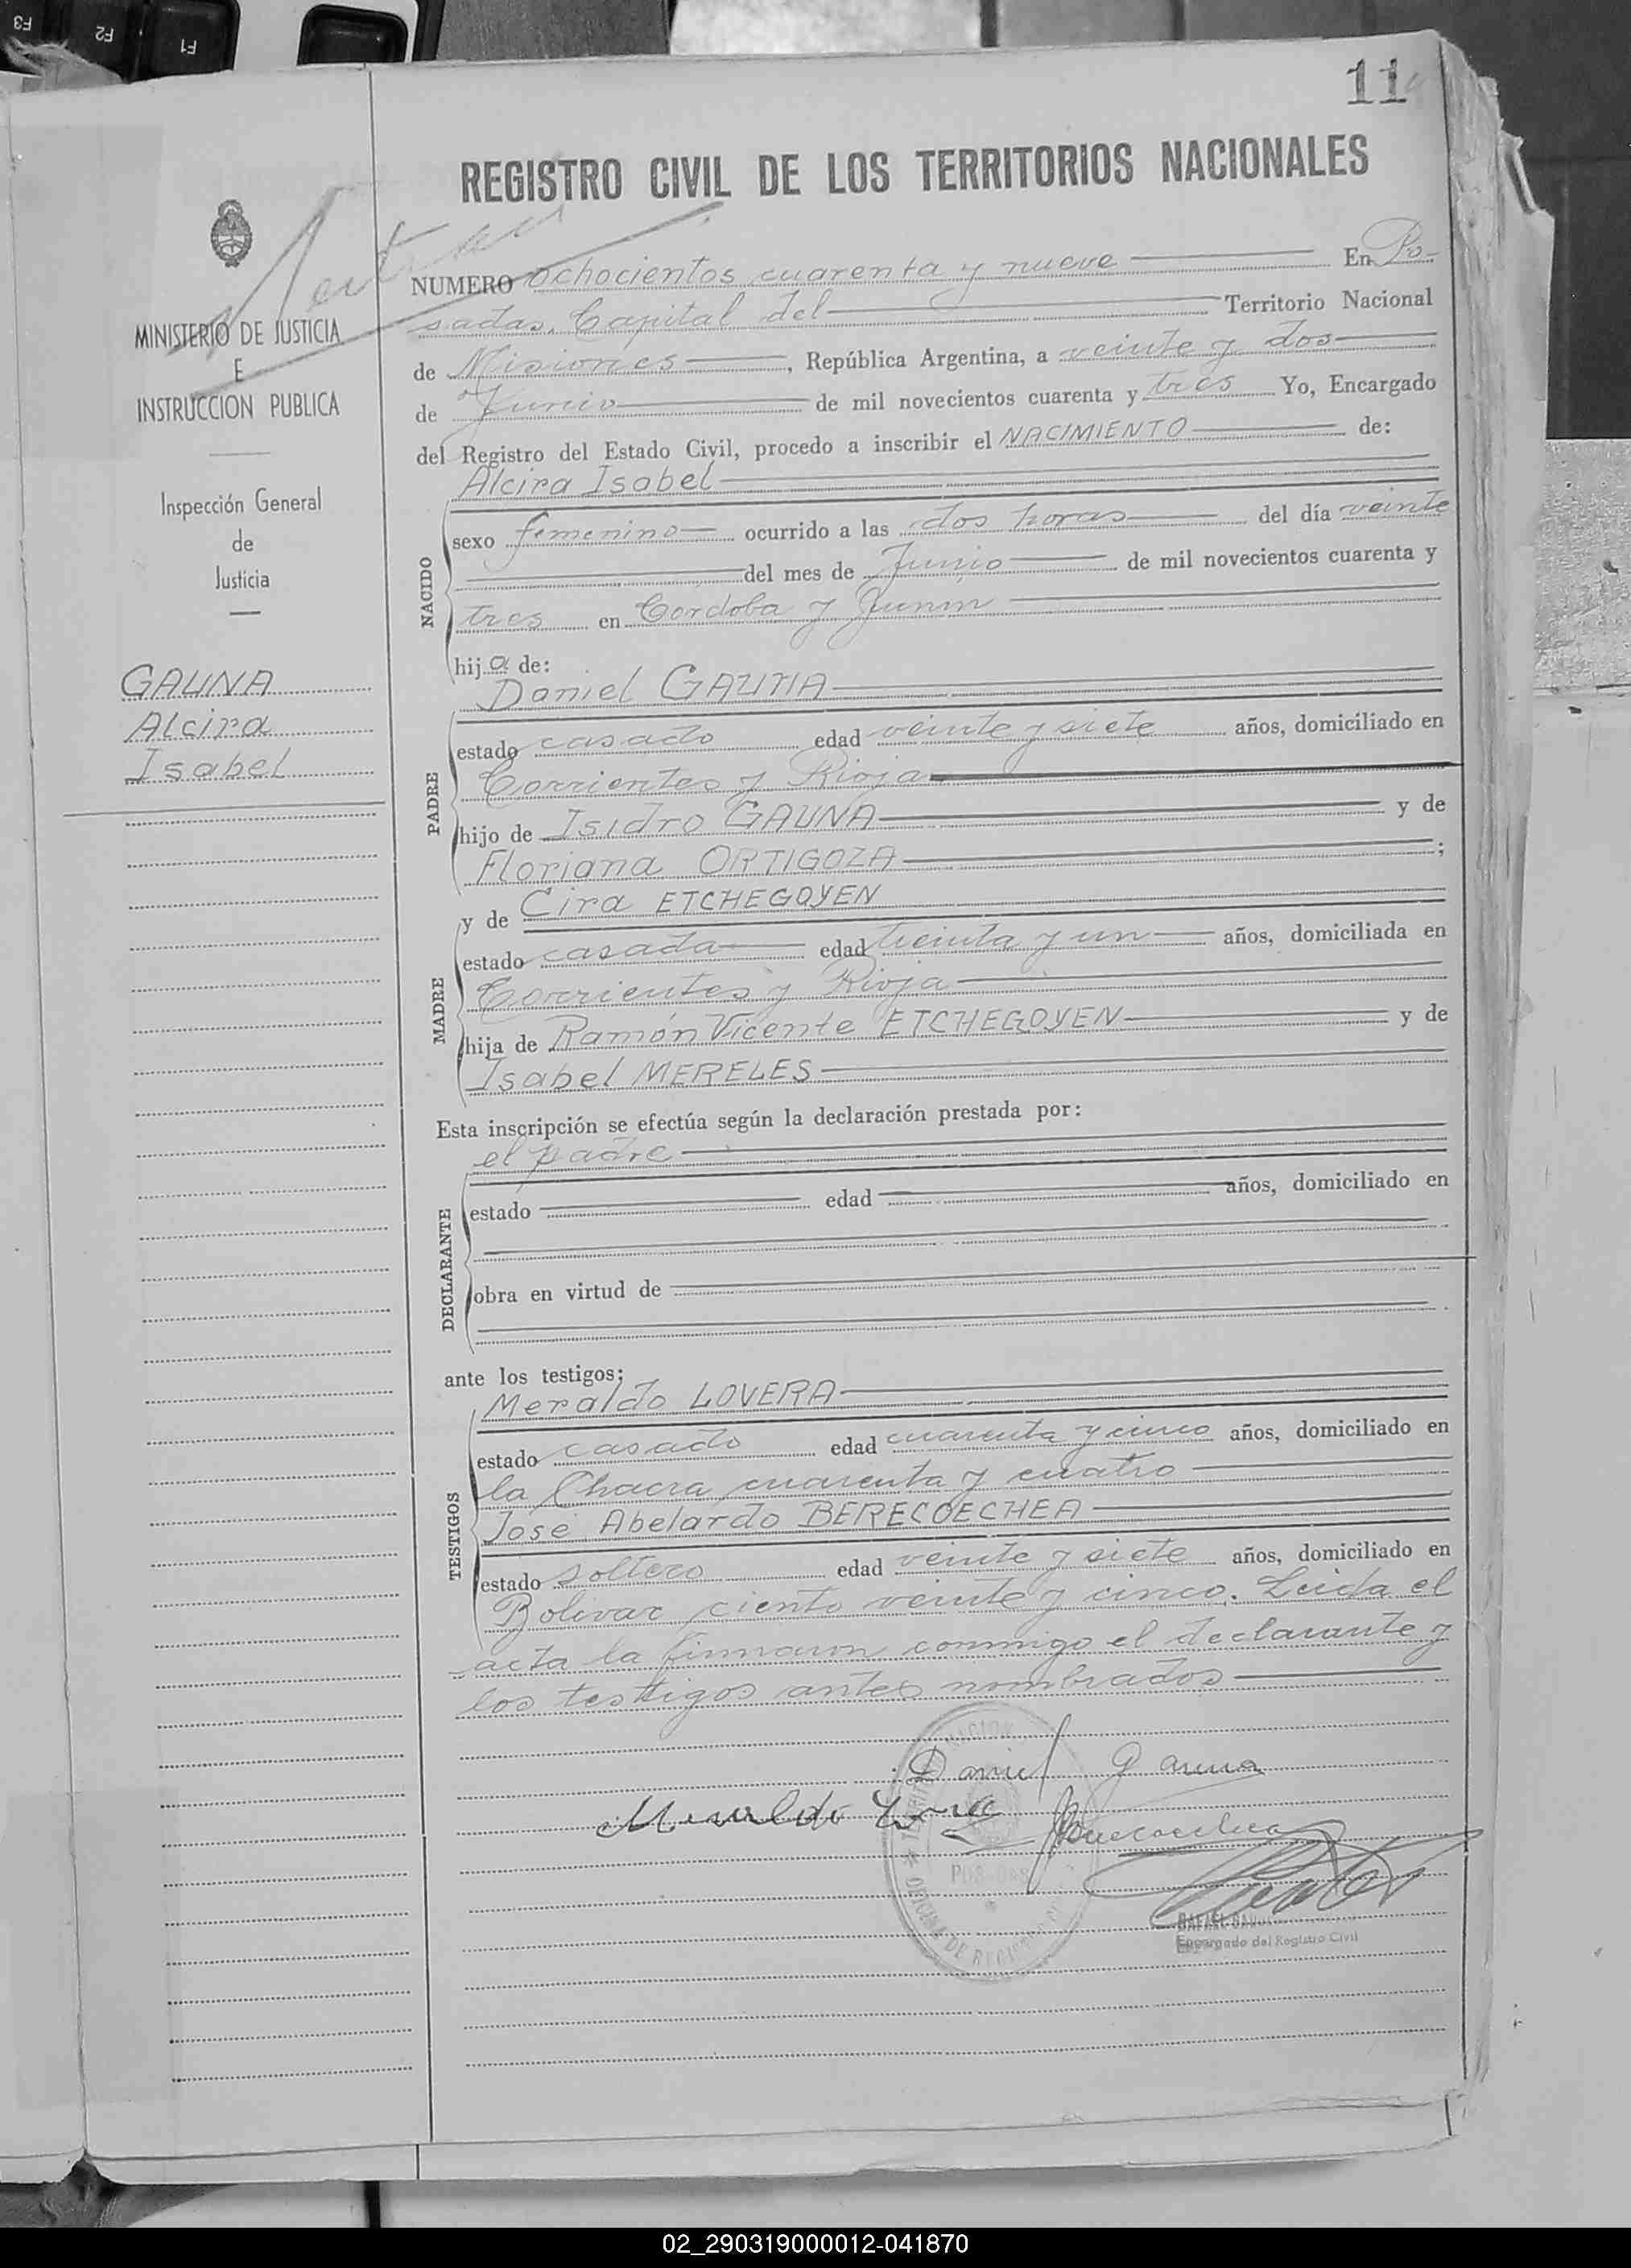 F3 F2 F1
11
REGISTRO CIVIL DE LOS TERRITORIOS NACIONALES
MINISTERIO DE JUSTICIA
E
INSTRUCCION PUBLICA
Inspección General
de
Justicia
GAUNA
Alcira
Isabel
NUMERO ochocientos cuarenta y nueve En Po-
sadas, Capital del Territorio Nacional
de Misiones, República Argentina, a veinte y dos
de Junio de mil novecientos cuarenta y tres Yo, Encargado
del Registro del Estado Civil, procedo a inscribir el NACIMIENTO de:
Alcira Isabel
NACIDO
sexo femenino ocurrido a las dos horas del día veinte
del mes de Junio de mil novecientos cuarenta y
tres en Cordoba y Junin
hija de:
Daniel GAUNA
PADRE
estado casado edad veinte y siete años, domiciliado en
Corrientes y Rioja
hijo de Isidro GAUNA y de
Floriana ORTIGOZA;
y de Cira ETCHEGOYEN
MADRE
estado casada edad treinta y un años, domiciliada en
Corrientes y Rioja
hija de Ramón Vicente ETCHEGOYEN y de
Isabel MERELES
Esta inscripción se efectúa según la declaración prestada por:
el padre
DECLARANTE
estado edad años, domiciliado en
obra en virtud de
ante los testigos:
Meraldo LOVERA
TESTIGOS
estado casado edad cuarenta y cinco años, domiciliado en
la Chacra cuarenta y cuatro
José Abelardo BERECOECHEA
estado soltero edad veinte y siete años, domiciliado en
Bolivar ciento veinte y cinco. Leida el
acta la firmaron conmigo el declarante y
los testigos antes nombrados
Daniel Gauna
Meraldo Lovera
Berecoechea
POSADAS
OFICINA DE REGISTRO
RAFAEL
Encargado del Registro Civil
02_290319000012-041870